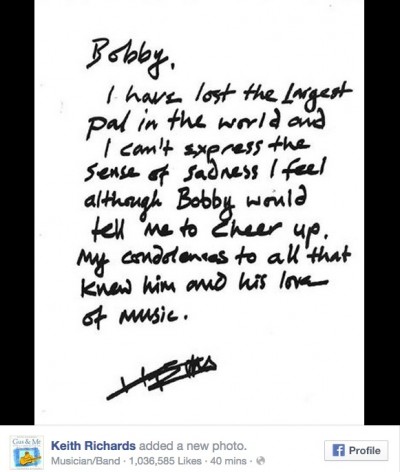 Bobby,
I have lost the largest
pal in the world and
I can't express the
sense of sadness I feel
although Bobby would
tell me to cheer up.
My condolences to all that
knew him and his love
of music.
Gus & Me
Keith Richards added a new photo.
Musician/Band · 1,036,585 Likes · 40 mins ·
Profile